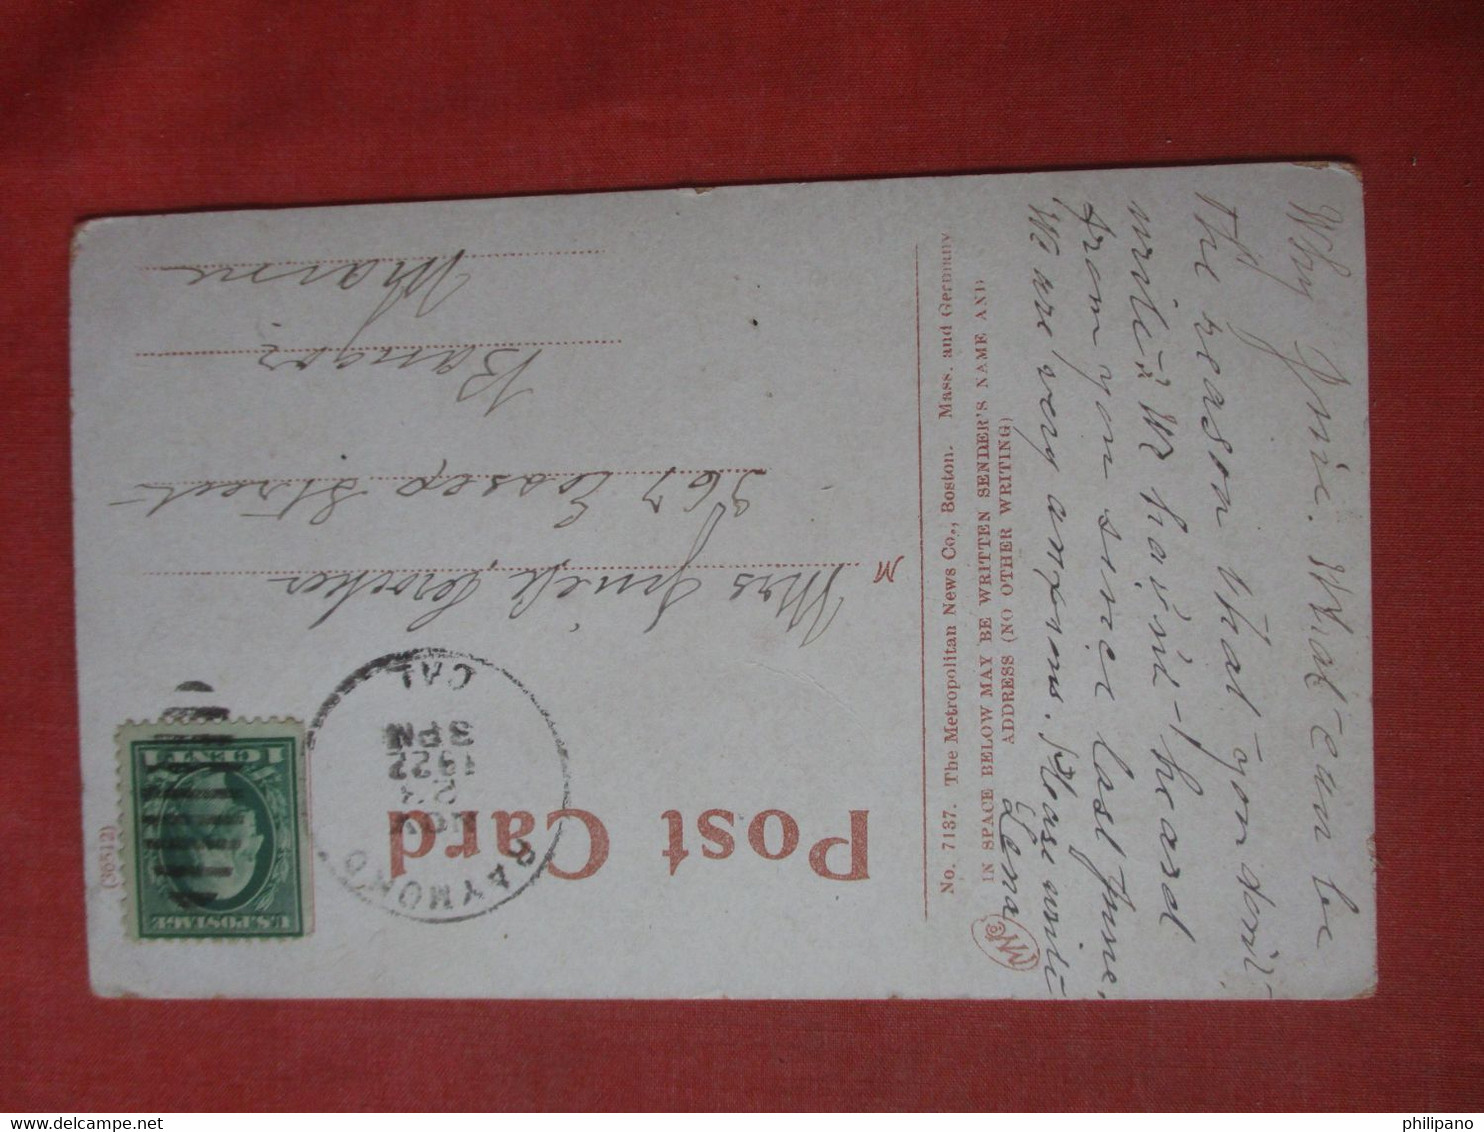 Why Jnie. What can be
the reason that you don't
write? We haven't heard
from you since last June.
We are very anxious. Please write
Lena
No. 7137. The Metropolitan News Co., Boston. Mass. and Germany
IN SPACE BELOW MAY BE WRITTEN SENDER'S NAME AND
ADDRESS (NO OTHER WRITING)
Post Card
(36512)
U.S. POSTAGE
1 CENT 1
RAYMOND
NOV
1922
3 PM
CAL
M
Mrs Crocker
367 Essex Street
Bangor
Maine
philipano